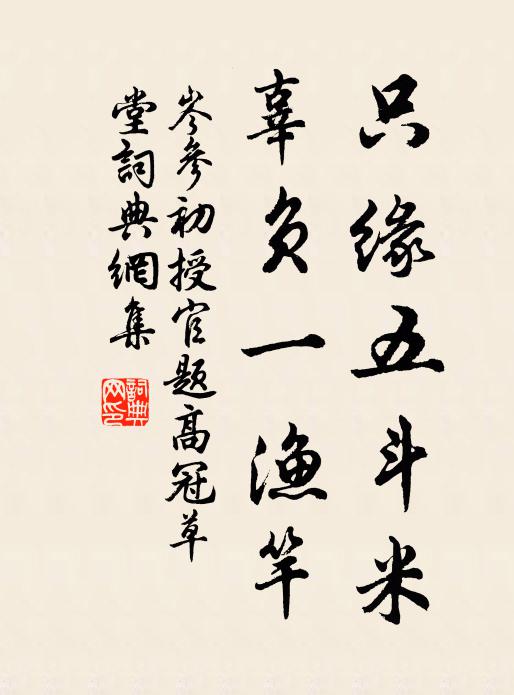 只缘五斗米
辜负一渔竿
岑参初授官题高冠草
堂詞典網集
詞典
网印